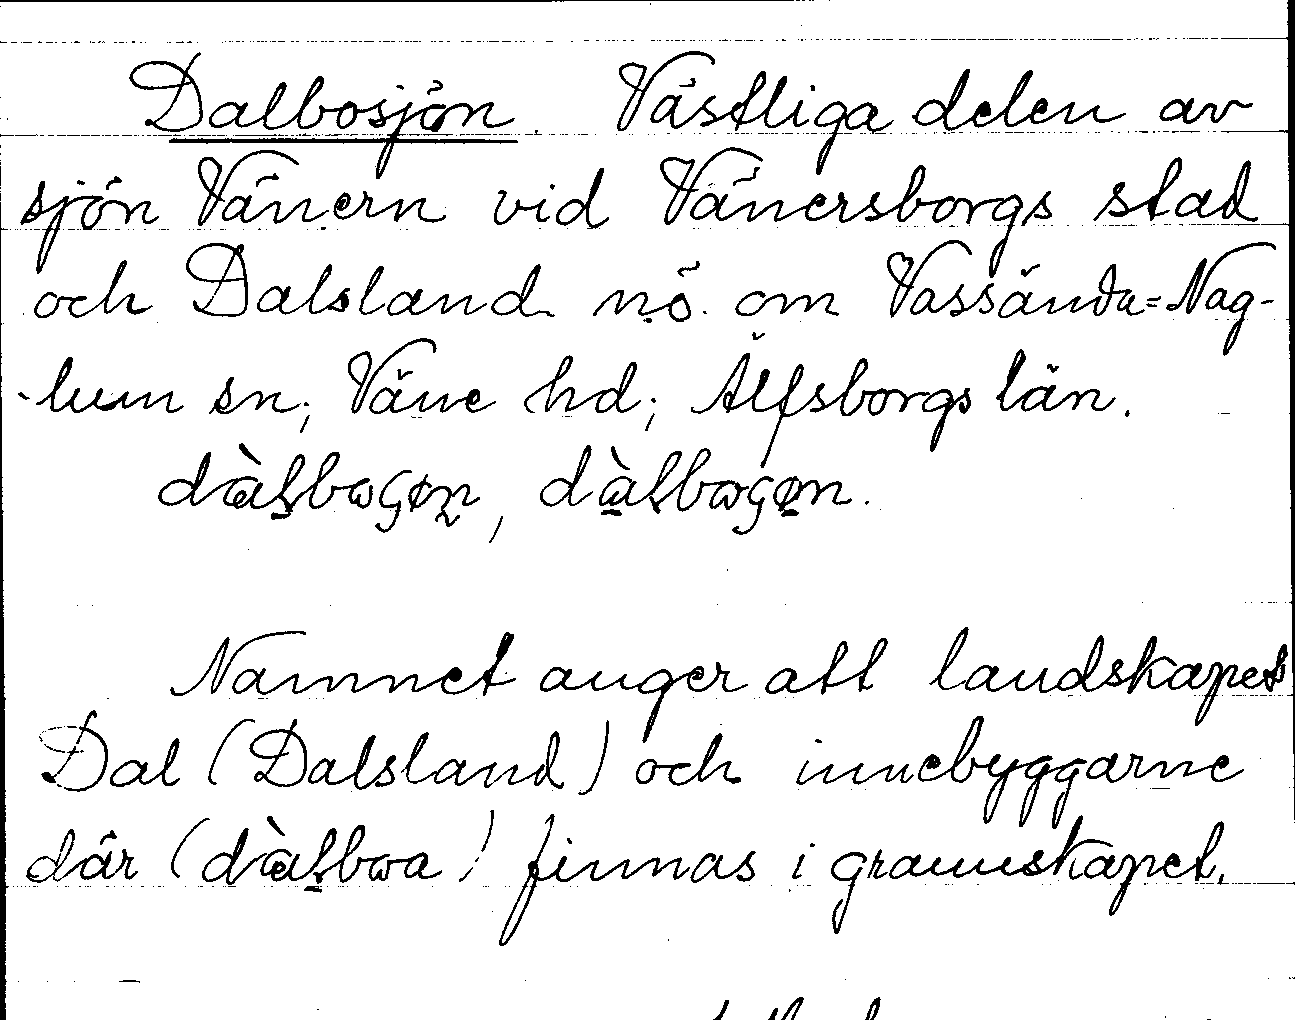 Dalbosjön. Västliga delen av
sjön Vänern vid Vänersborgs stad
och Dalsland n.ö. om Vassända=Nag-
-lum sn; Väne hd; Älfsborgs län.
dàḷbωɕøn, dàḷbωɕøn.
Namnet anger att landskapet
Dal (Dalsland) och innebyggarne
där (dàḷbωa) finnas i grannskapet.